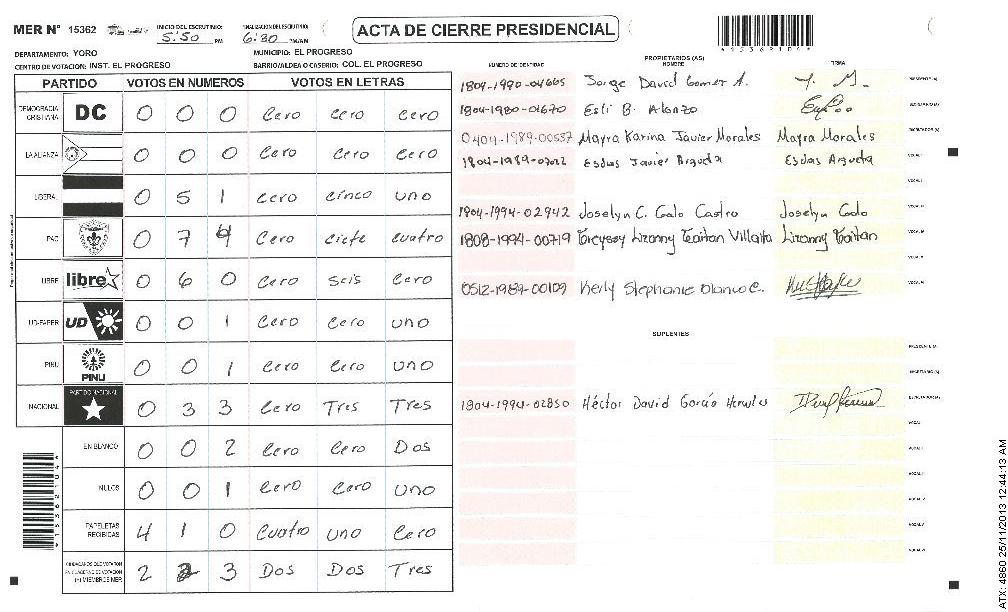 MER N° 15362 INICIO DEL ESCRUTINIO: 5:50 PM FINALIZACION DEL ESCRUTINIO: 6:30 PM/AM
ACTA DE CIERRE PRESIDENCIAL
DEPARTAMENTO: YORO MUNICIPIO: EL PROGRESO
CENTRO DE VOTACION: INST. EL PROGRESO BARRIO/ALDEA O CASERIO: COL. EL PROGRESO
PARTIDO VOTOS EN NUMEROS VOTOS EN LETRAS
DEMOCRACIA CRISTIANA DC 0 0 0 Cero Cero Cero
LA ALIANZA 0 0 0 Cero Cero Cero
LIBERAL 0 5 1 Cero cinco uno
PAC 0 7 4 Cero ciete cuatro
LIBRE libre 0 6 0 Cero seis Cero
UD-FAPER UD 0 0 1 Cero Cero uno
PINU PINU 0 0 1 Cero Cero uno
NACIONAL PARTIDO NACIONAL 0 3 3 Cero Tres Tres
EN BLANCO 0 0 2 Cero Cero Dos
NULOS 0 0 1 Cero Cero uno
PAPELETAS RECIBIDAS 4 1 0 Cuatro uno Cero
CIUDADANOS QUE VOTARON EN CUADERNO DE VOTACION (+) MIEMBROS MER 2 2 3 Dos Dos Tres
NUMERO DE IDENTIDAD PROPIETARIOS (AS) NOMBRE FIRMA
1804-1990-04665 Jorge David Gomez A. PRESIDENTE (A)
1804-1980-01670 Esli B. Alonzo SECRETARIO (A)
0404-1989-00537 Mayra Karina Javier Morales Mayra Morales ESCRUTADOR (A)
Esdras Javier Argueta Esdras Argueta VOCAL I
1804-1994-02942 Joselyn C. Galo Castro Joselyn Galo
1808-1994-00719 Lizanny Gaitan Villalta Lizanny Gaitan
0512-1989-00109 Kerly Stephanie Olanco C.
SUPLENTES
PRESIDENTE (A)
SECRETARIO (A)
1804-1994-02850 Héctor David García ESCRUTADOR (A)
ATX: 4860 25/11/2013 12:44:13 AM